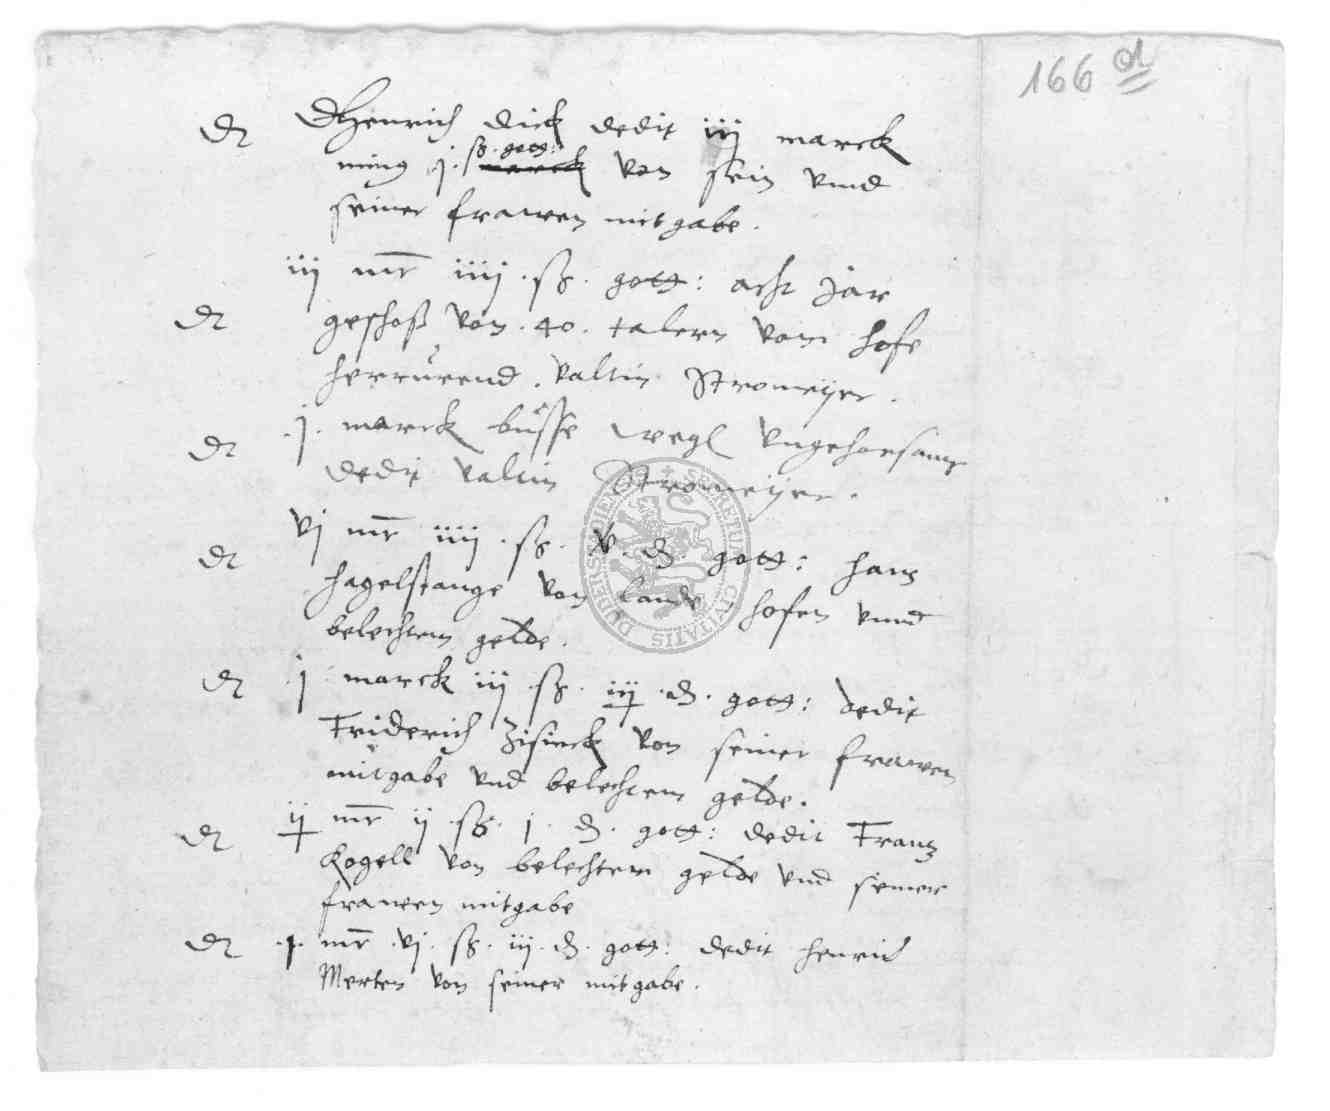 166 a
dt Henrich Dick dedit iij marck
ß. gott:
minus j. marck von sein vnnd
seiner frawen mitgabe.
iij mr iiij. ß. gott: acht jar
dt geschoß von. 40. talern vom hofe
herrurend. Valtin Stromeyer.
dt .j. marck busse wegen vngehorsams
dedit Valtin Stromeyer.
vj mr iiij. ß. v. d. gott: Hans
dt Hagelstange von lande hofen vnnd
belechtem gelde.
dt j marck iij. ß. iij. d. gott: dedit
Friderich Zisinck von seiner frawen
mitgabe vnd belechtem gelde.
dt ij mr ij. ß. j. d. gott: dedit Frantz
Kogell von belechtem gelde vnd seiner
frawen mitgabe
dt .j. mr vj. ß. iij. d. gott: dedit Henrich
Merten von seiner mitgabe.
SECRETUM CIVITATIS DUDERSTADIENSIS